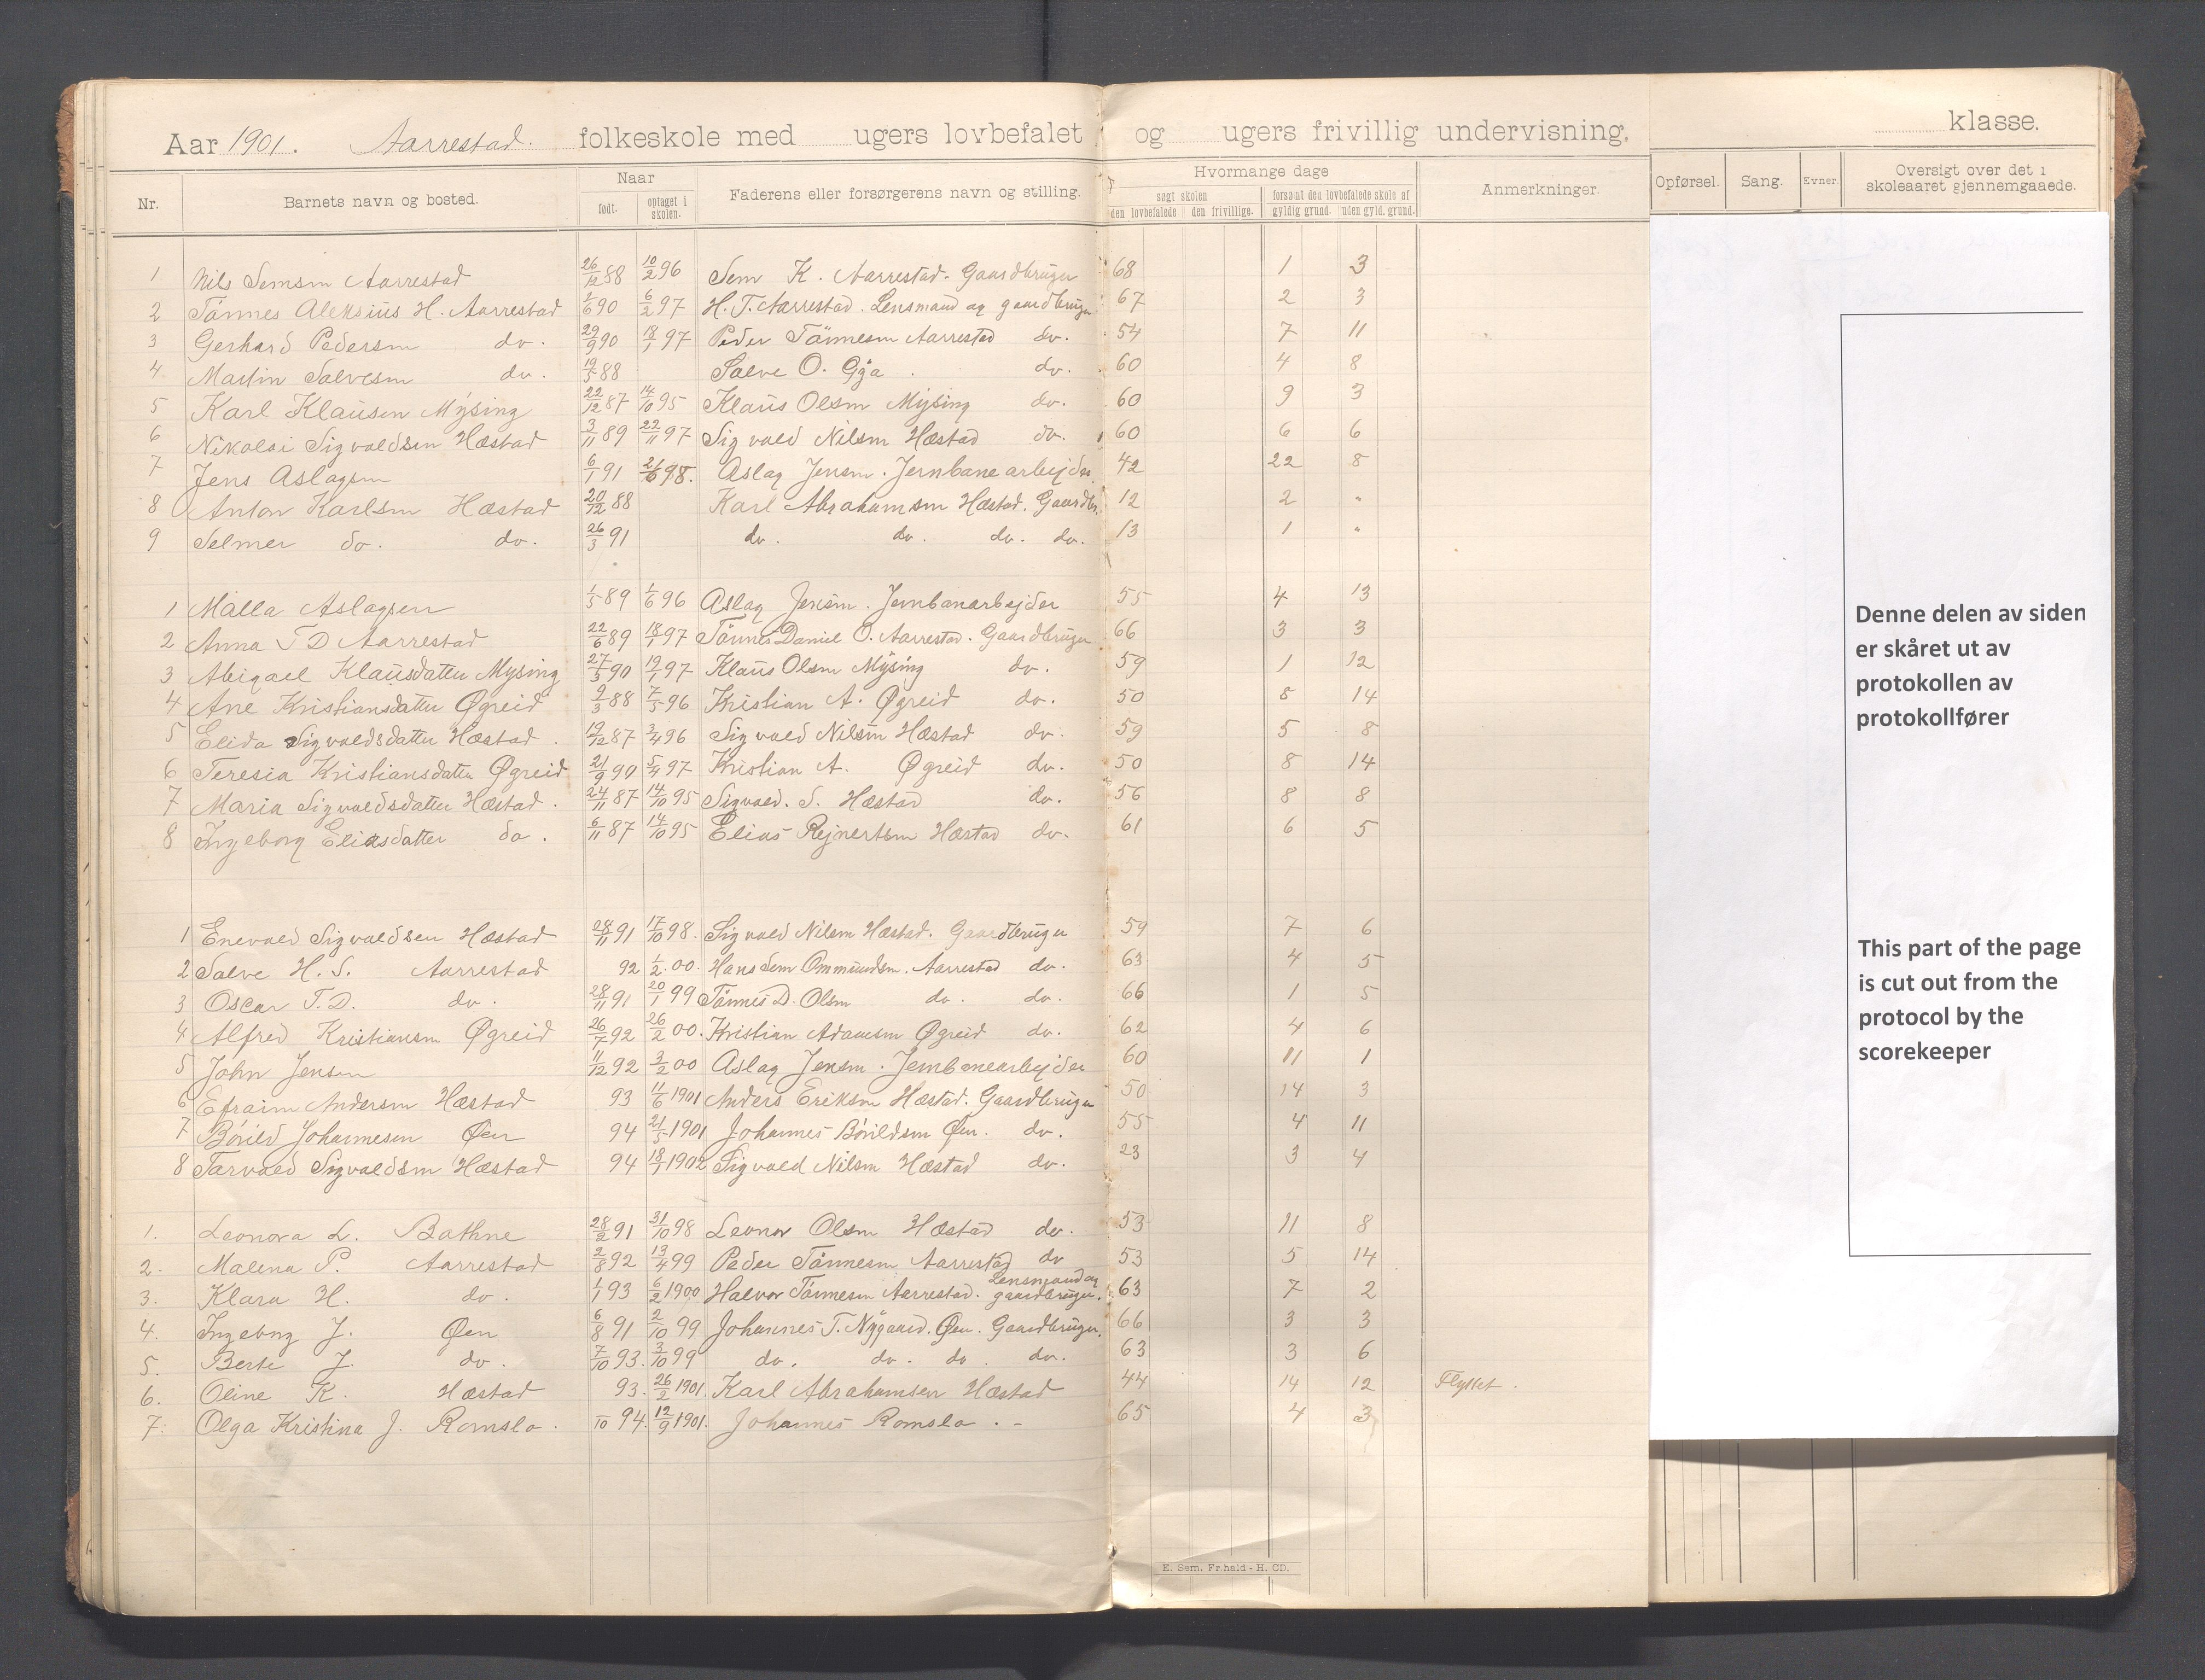 Aar 1901. Aarrestad. folkeskole med ugers lovbefalet og ugers frivillig undervisning, klasse.
Nr. Barnets navn og bosted. Naar født. optaget i skolen. Faderens eller forsørgerens navn og stilling. Hvormange dage søgt skolen den lovbefalede den frivillige. forsømt den lovbefalede skole af gyldig grund. uden gyld. grund. Anmerkninger. Opførsel. Sang. Evner. Oversigt over det i skoleaaret gjennemgaaede.
1 Nils Semsm Aarrestad 26/12 88 10/2 96 Sem K. Aarrestad. Gaardbruger 68 1 3
2 Tännes Aleksius H. Aarrestad 1/6 90 6/2 97 H. T. Aarrestad. Lensmand og gaardbruger 67 2 3
3 Gerhard Pedersm do. 29/9 90 18/1 97 Peder Tännesm Aarrestad do. 54 7 11
4. Martin Salvesm do. 19/5 88 Salve O. do. 60 4 8
5 Karl Klausen Mysing 22/12 87 14/10 95 Klaus Olsm Mysing do. 60 9 3
6 Nikolai Sigvaldsen Hæstad 3/11 89 22/11 97 Sigvald Nilsm Hæstad do. 60 6 6
7 Jens Aslagsm 6/1 91 2/6 98. Aslag Jensm. Jernbanearbejder 42 22 8
8 Anton Karlsm Hæstad 20/12 88 Karl Abrahamsm Hæstad. Gaardbr. 12 2 "
9 Selmer do. do. 26/3 91 do. do. do. do. 13 1 "
1 Malla Aslagsen 1/5 89 1/6 96 Aslag Jensm. Jernbanarbejder 55 4 13
2 Anna T D Aarrestad 22/6 89 18/1 97 Tännes Daniel O. Aarrestad. Gaardbruger 66 3 3
3 Abigael Klausdatter Mysing 27/3 90 19/1 97 Klaus Olsm Mysing do. 59 1 12
4 Ane Kristiansdatter Øgreid 2/3 88 7/5 96 Kristian A. Øgreid do. 50 8 14
5 Elida Sigvaldsdatter Hæstad. 12/12 87 3/4 96 Sigvald Nilsm Hæstad do. 59 5 8
6 Teresia Kristiansdatter Øgreid 21/9 90 5/4 97 Kristian A. Øgreid do. 50 8 14
7 Maria Sigvaldsdatter Hæstad. 24/11 87 14/10 95 Sigvald. S. Hæstad do. 56 8 8
8 Ingeborg Eliasdatter do. 6/11 87 14/10 95 Elias Rejnertsm Hæstad do. 61 6 5
1 Enevald Sigvaldsen Hæstad 28/11 91 17/10 98. Sigvald Nilsm Hæstad. Gaardbruger 59 7 6
2 Salve H. S. Aarrestad 92 1/2 00. Hans Sem Ommundsm. Aarrestad do. 63 4 5
3 Oscar T. D. do. 28/11 91 20/1 99 Tännes D. Olsm do. do. 66 1 5
4 Alfred Kristiansm Øgreid 26/7 92 26/2 00. Kristian Adamsm Øgreid do. 62 4 6
5 John Jensen 11/12 92 3/2 00 Aslag Jensm. Jernbanearbejder 60 11 1
6 Efraim Andersm Hæstad 93 11/6 1901 Anders Eriksm Hæstad. Gaardbruger 50 14 3
7 Bórild Johannesen Øen 94 21/5 1901 Johannes Bórildsm Øen. do. 55 4 11
8 Tarvald Sigvaldsm Hæstad 94 18/1 1902 Sigvald Nilsm Hæstad do. 23 3 4
1. Leonora L. Bathne 28/2 91 31/10 98 Leonor Olsm Hæstad do. 53 11 8
2. Malena P. Aarrestad 2/8 92 13/4 99 Peder Tännesm Aarrestad do 53 5 14
3. Klara H. do. 1/1 93 6/2 1900 Halvor Tännesm Aarrestad. Lensmand og gaardbruger. 63 7 2
4. Ingebrg J. Øen 6/8 91 2/10 99 Johannes T. Nygaard. Øen. Gaardbruger. 66 3 3
5. Berte J. do. 7/10 93. 3/10 99 do. do. do. do. 63 3 6
6. Oline K. Hæstad 93. 26/2 1901. Karl Abrahamsen Hæstad 44 14 12 Flyttet.
7. Olga Kristina J. Romslo. /10 94. 12/9 1901. Johannes Romslo. - 65 4 3
E. Sem. Fr.hald - H. CD.
Denne delen av siden
er skåret ut av
protokollen av
protokollfører
This part of the page
is cut out from the
protocol by the
scorekeeper